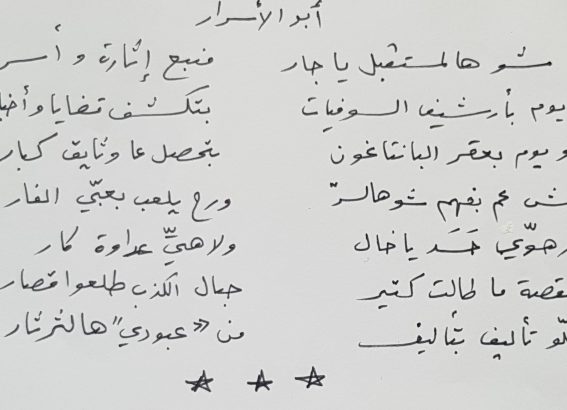 أبو الأسرار
شو هالمستقبل يا جار منبع إثارة و أسر
يوم بأرشيف السوفيات بتكشف قضايا وأخبا
و يوم بعقر البانتاغون بتحصل عا وثايق كبار
ش عم بفهم شو هالسرّ ورح يلعب بعبّي الفار
هوّي حَسَد يا خال ولا هيِّ عداوة كار
قصة ما طالت كتير حبال الكذب طلعوا قصار
لّو تأليف بتأليف من «عبودي» هالثرثار